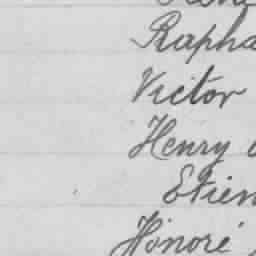 Rapha
Victor
Henry
Etien
Honoré